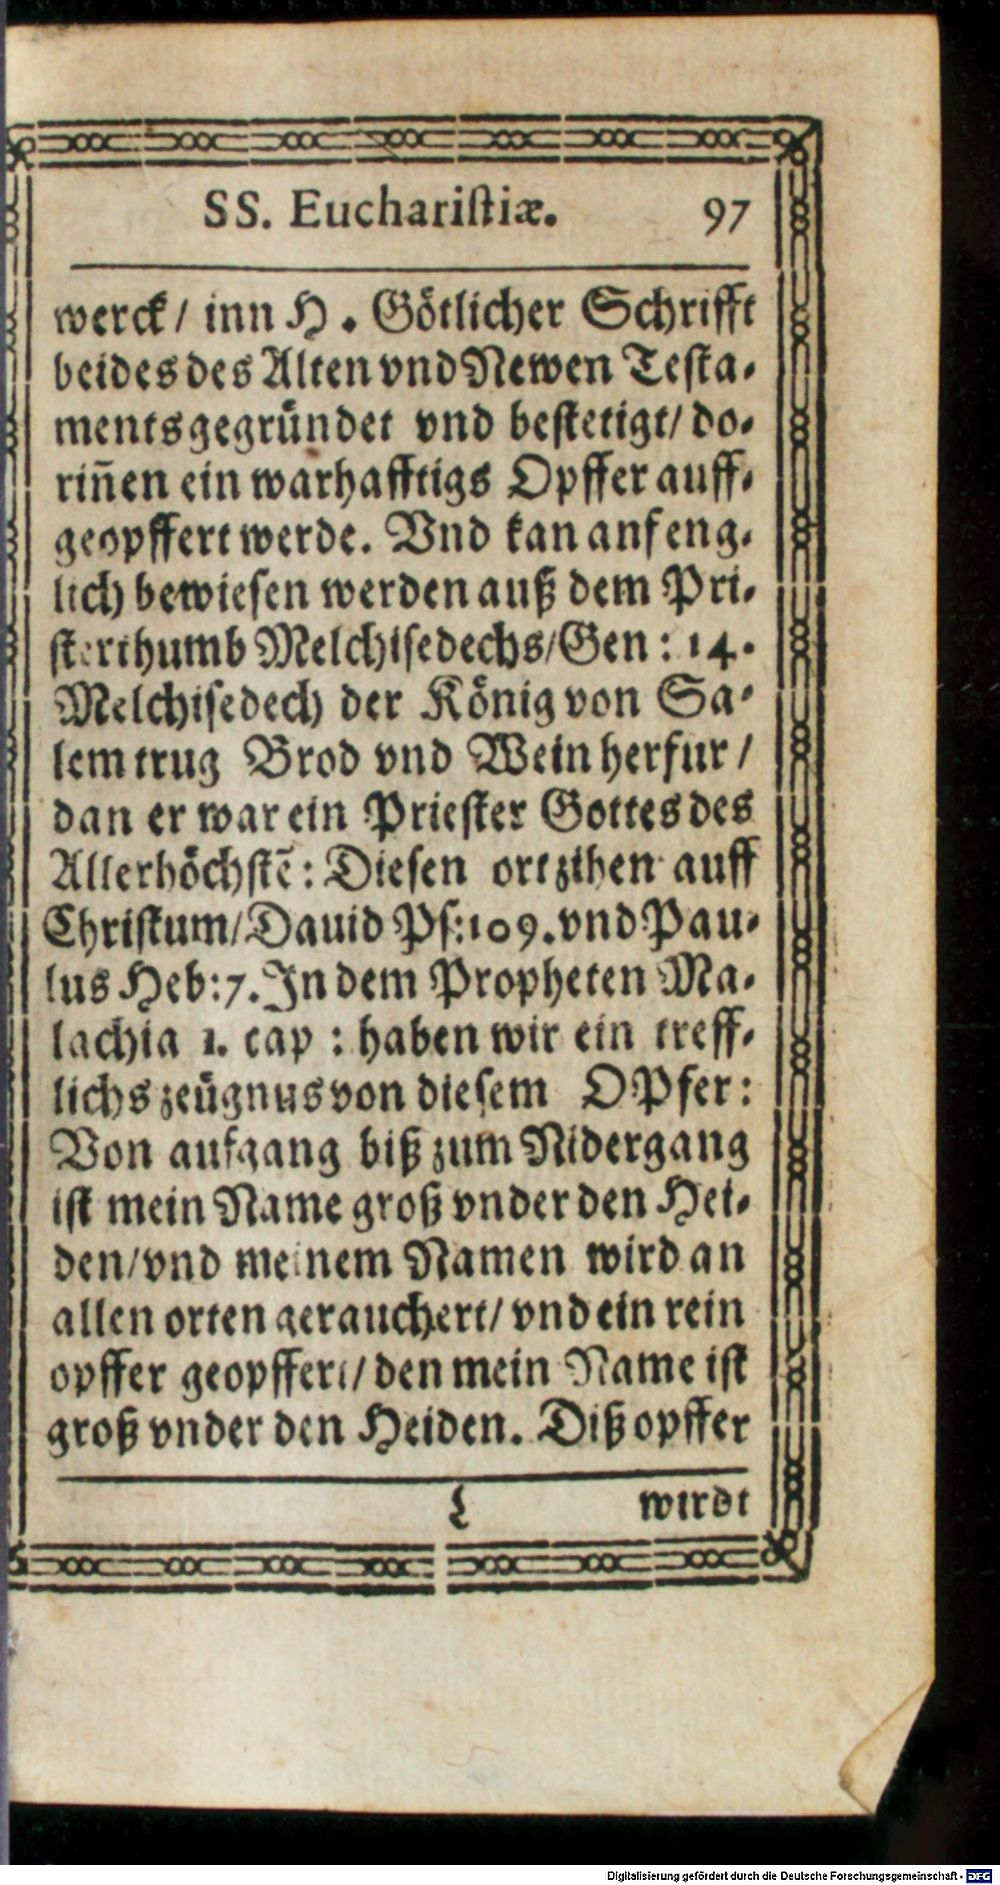 SS. Euchariſtiæ. 97
werck/ inn H. Götlicher Schrifft
beides des Alten vnd Newen Teſta-
ments gegründet vnd beſtetigt/ do-
riñen ein warhafftigs Opffer auff-
geopffert werde. Vnd kan anfeng-
lich bewieſen werden auß dem Pri-
ſterthumb Melchiſedechs/Gen: 14.
Melchiſedech der König von Sa-
lem trug Brod vnd Wein herfur/
dan er war ein Prieſter Gottes des
Allerhöchſtē: Dieſen ort zihen auff
Chriſtum/Dauid Pſ:109. vnd Pau-
lus Heb:7. In dem Propheten Ma-
lachia 1. cap: haben wir ein treff-
lichs zeügnus von dieſem OPfer:
Von aufgang biß zum Nidergang
iſt mein Name groß vnder den Hei-
den/vnd meinem Namen wird an
allen orten gerauchert/ vnd ein rein
opffer geopffert/ den mein Name iſt
groß vnder den Heiden. Diß opffer
wirdt
Digitalisierung gefördert durch die Deutsche Forschungsgemeinschaft - DFG